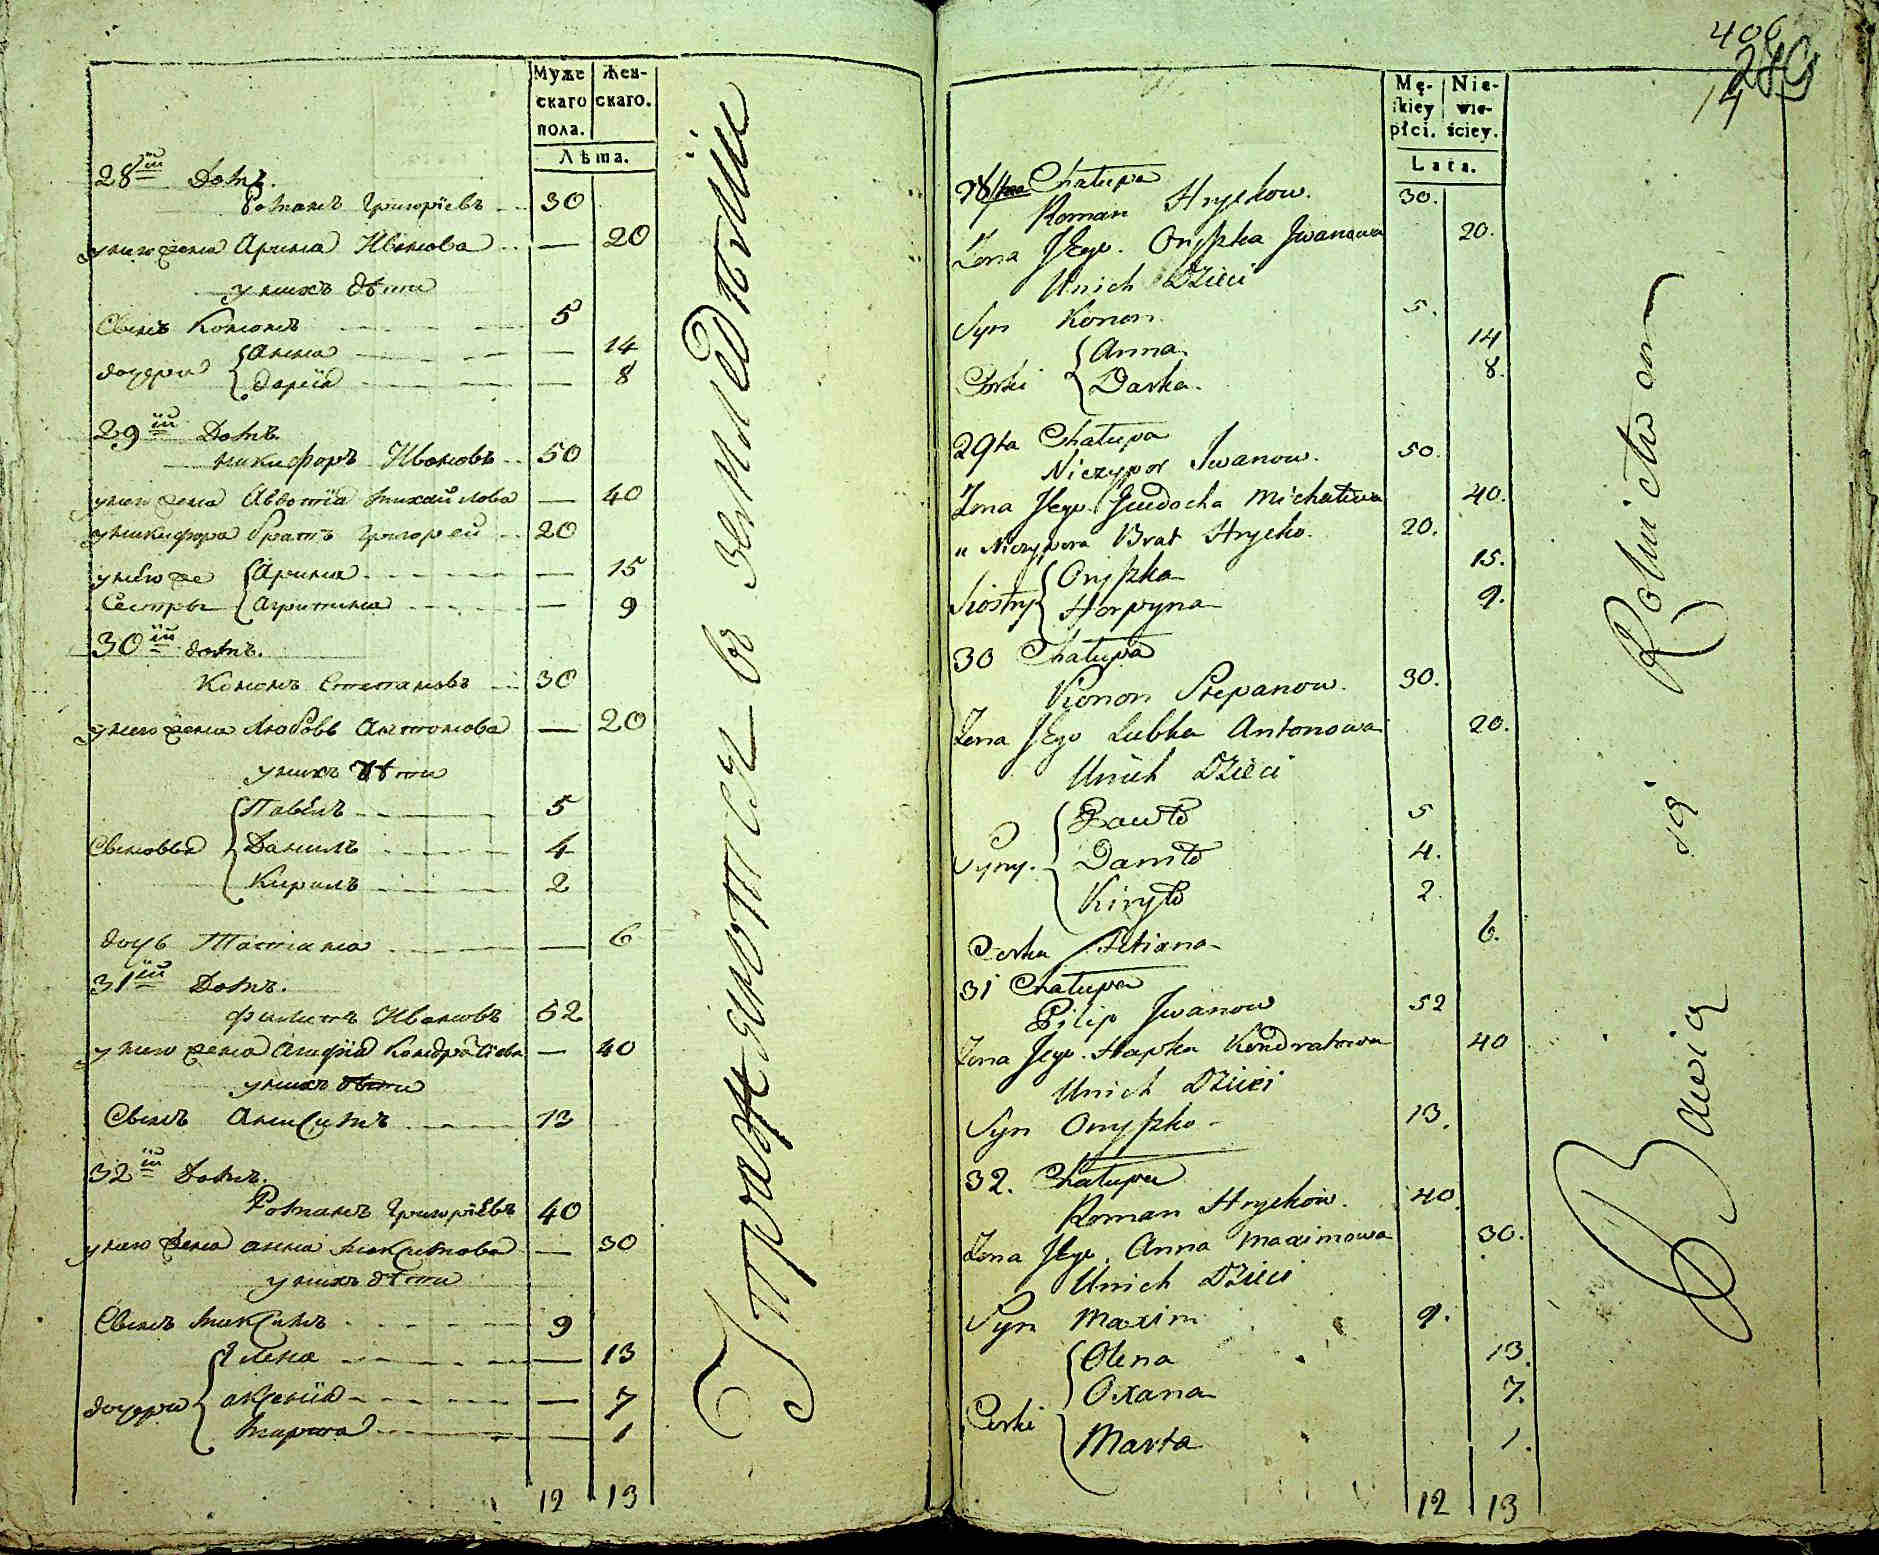 Муже
скаго
пола.
Жен-
скаго.
Лѣта.
28ій Домъ.
Романъ Григорїевъ 30
унего жена Арина Иванова — 20
у нихъ дѣти
Сынъ Кононъ 5
дочери Анна — 14
Дарїя — 8
29ій Домъ
Никифоръ Ивановъ 50
унего жена Авдотїа Михайлова — 40
у никифора братъ Григорей 20
унего же Сестры Арина — 15
Агрипина — 9
30ій домъ.
Кононъ Степановъ 30
унего жена Любовь Антонова — 20
у нихъ дѣти
Сыновья Павелъ 5
Данилъ 4
Кирилъ 2
дочь Татіана — 6
31ій Домъ.
Филипъ Ивановъ 52
у него жена Агафїя Кондратїева — 40
у нихъ дѣти
Сынъ Анисимъ 13
32ій Домъ.
Романъ Григорїевъ 40
унего жена анна Максимова — 30
у нихъ дѣти
Сынъ Максимъ 9
дочери Елена — 13
аксенїя — 7
Марта — 1
12 13
Упражняются въ земледѣлїи
406
286
14
Mę-
skiey
płci.
Nie-
wie-
ściey.
Lata.
28 Chałupa
Roman Hryckow. 30.
Żona Jego. Oryszka Jwanowa 20.
Unich Dzieci
Syn Konon 5.
Corki Anna. 14
Darka. 8.
29ta Chałupa
Niczypor Jwanow. 50.
Żona Jego. Jewdocha Michałowa 40.
u Niczypora Brat Hrycko. 20.
Siostry Oryszka 15.
Horpyna 9.
30 Chałupa
Konon Stepanow. 30.
Żona Jego Lubka Antonowa 20.
Unich Dzieci
Syny. Pawło 5
Daniło 4.
Kiryło 2.
Corka Tetiana 6.
31 Chałupa
Pilip Jwanow 52
Żona Jego. Hapka Kondratowa 40
Unich Dzieci
Syn Onyszko 13.
32. Chałupa
Roman Hryckow. 40.
Żona Jego. Anna Maximowa 30.
Unich Dzieci
Syn Maxim 9.
Corki Olena 13.
Oxana 7.
Marta 1.
12 13
Bawią się Rolnictwom